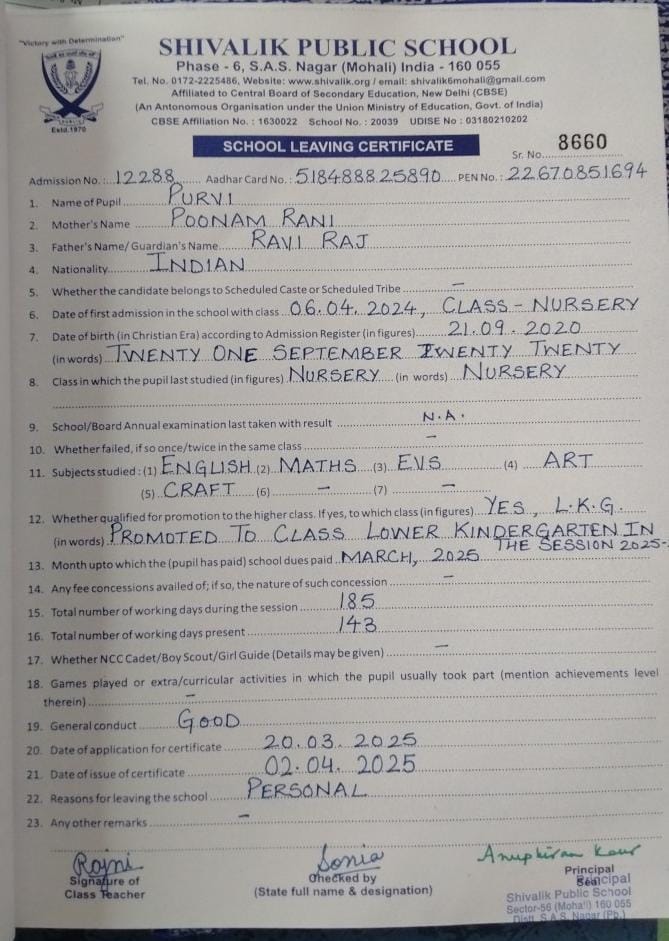 "Victory with Determination"
Estd.1970
SHIVALIK PUBLIC SCHOOL
Phase - 6, S.A.S. Nagar (Mohali) India - 160 055
Tel. No. 0172-2225486, Website: www.shivalik.org / email: shivalik6mohali@gmail.com
Affiliated to Central Board of Secondary Education, New Delhi (CBSE)
(An Antonomous Organisation under the Union Ministry of Education, Govt. of India)
CBSE Affiliation No. : 1630022 School No. : 20039 UDISE No : 03180210202
SCHOOL LEAVING CERTIFICATE
Sr. No. 8660
Admission No. : 12288 Aadhar Card No. : 518488825890 PEN No. : 22670851694
1. Name of Pupil PURVI
2. Mother's Name POONAM RANI
3. Father's Name/ Guardian's Name RAVI RAJ
4. Nationality INDIAN
5. Whether the candidate belongs to Scheduled Caste or Scheduled Tribe —
6. Date of first admission in the school with class 06.04.2024, CLASS - NURSERY
7. Date of birth (in Christian Era) according to Admission Register (in figures) 21.09.2020
(in words) TWENTY ONE SEPTEMBER TWENTY TWENTY
8. Class in which the pupil last studied (in figures) NURSERY (in words) NURSERY
9. School/Board Annual examination last taken with result N.A.
10. Whether failed, if so once/twice in the same class —
11. Subjects studied : (1) ENGLISH (2) MATHS (3) EVS (4) ART
(5) CRAFT (6) — (7) —
12. Whether qualified for promotion to the higher class. If yes, to which class (in figures) YES, L.K.G.
(in words) PROMOTED TO CLASS LOWER KINDERGARTEN IN
THE SESSION 2025-
13. Month upto which the (pupil has paid) school dues paid MARCH, 2025
14. Any fee concessions availed of; if so, the nature of such concession —
15. Total number of working days during the session 185
16. Total number of working days present 143
17. Whether NCC Cadet/Boy Scout/Girl Guide (Details may be given) —
18. Games played or extra/curricular activities in which the pupil usually took part (mention achievements level
therein) —
19. General conduct GOOD
20. Date of application for certificate 20.03.2025
21. Date of issue of certificate 02.04.2025
22. Reasons for leaving the school PERSONAL
23. Any other remarks —
Rajni Sonia Anupkiran Kaur
Signature of Class Teacher
Checked by
(State full name & designation)
Principal
Seal
Principal
Shivalik Public School
Sector-56 (Mohali) 160 055
Distt. S.A.S. Nagar (Pb.)